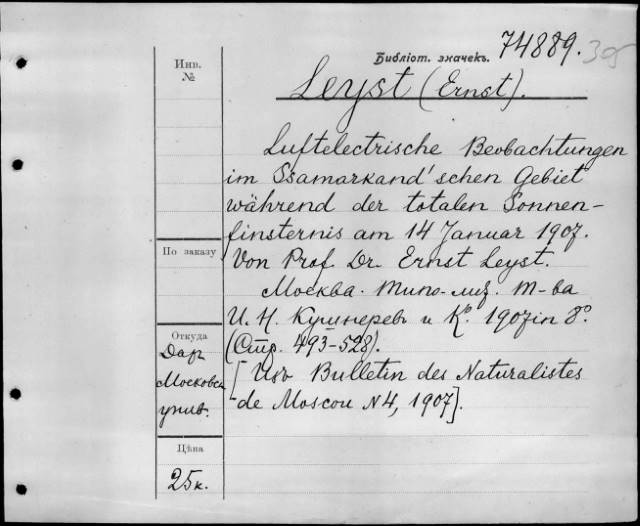 Библіот. значекъ. 74889. 395
Инв.
№
Leyst (Ernst).
Luftelectrische Beobachtungen
im Ssamarkand'schen Gebiet
während der totalen Sonnen-
finsternis am 14 Januar 1907.
По заказу
Von Prof. Dr. Ernst Leyst.
Москва. Типо-лиѳ. Т-ва
И. Н. Кушнеревъ и Ко. 1907 in 8o.
Откуда
(Стр. 493-528).
Даръ
Московск.
унив.
[Изъ Bulletin des Naturalistes
de Moscou N4, 1907].
Цѣна
25к.